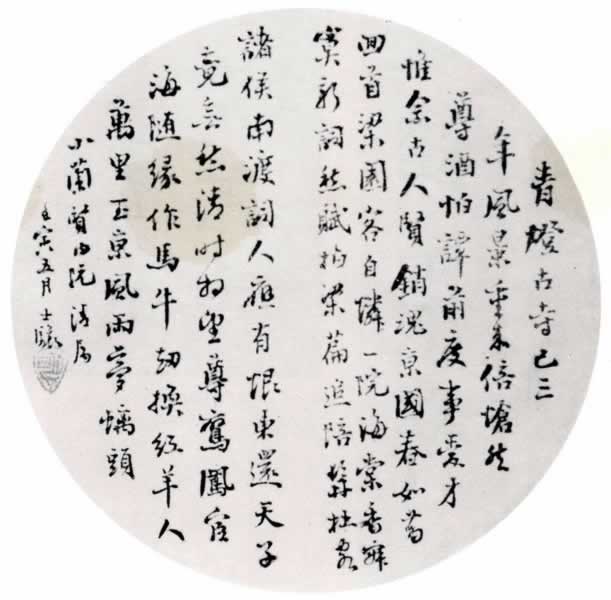 青燈古寺已三
年風景重來倍愴然
尊酒怕譚前度事愛才
惟念古人賢銷魂京國春如昔
回首梁園客自憐一院海棠香寂
寞新詞愁賦柏梁篇追陪杜客
諸侯南渡詞人應有恨東還天子
竟無愁清時物望尊鸞鳳宦
海隨緣作馬牛劫換紅羊人
萬里玉京風雨夢螭頭
小蘭賢阮清屬
壬寅五月 士驤